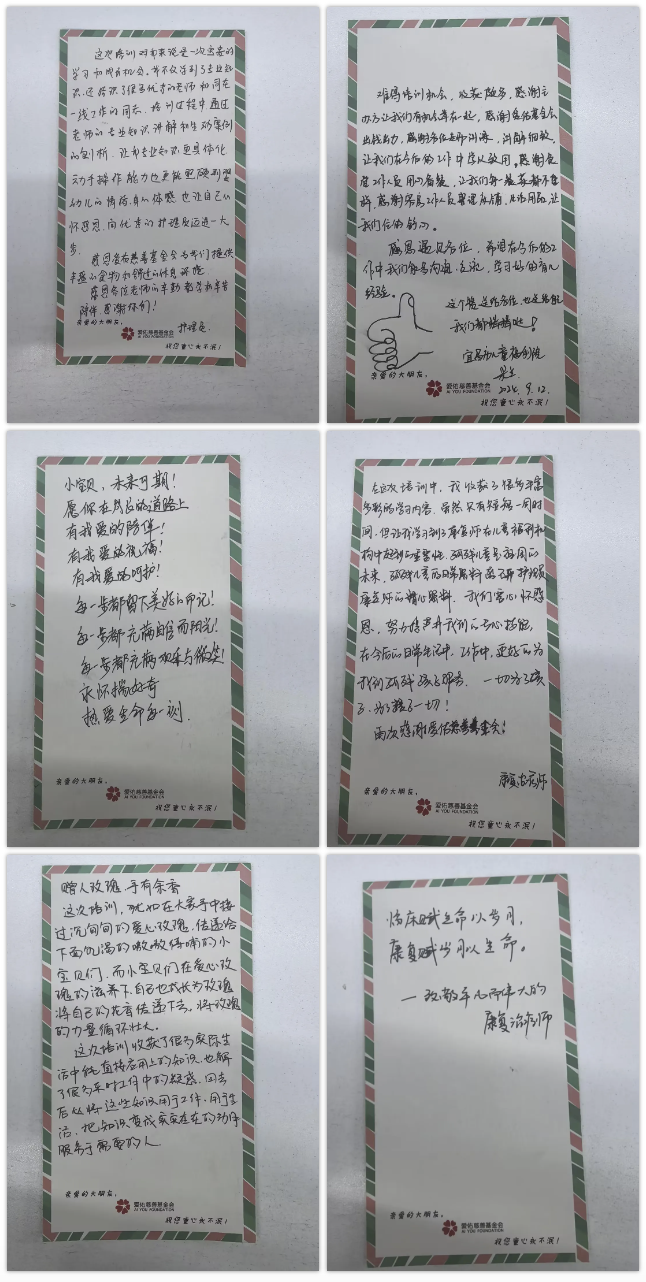 这次培训对我来说是一次宝贵的
学习和成长机会。我不仅学到了专业知
识,还结识了很多优秀的老师和同在
一线工作的同仁。培训过程中通过
老师的专业知识讲解和生动案例
的剖析,让我专业知识更具体化
动手操作能力也更能照顾到婴
幼儿的情绪,身心体感也让自己心
怀感恩,向优秀的护理员迈进一大
步。
感恩爱佑慈善基金会为我们提供
丰盛的食物和舒适的休息环境
感恩各位老师的辛勤教学和辛苦
陪伴,恩谢你们!
护理员
亲爱的大朋友,
爱佑慈善基金会
AI YOU FOUNDATION
祝您童心永不泯!
难得培训机会,收获颇多,感谢主
办方让我们有机会聚在一起,感谢爱佑基金会
出钱出力,感谢各位老师的讲课,讲解细致,
让我们在今后的工作中学以致用,感谢食
堂工作人员用心备餐,让我们每一餐菜都不重
样,感谢宾馆工作人员整理床铺,生活用品,让
我们住的舒心。
感恩遇见各位,希望在今后的工
作中我们能多沟通,交流,学习好的育儿
经验。
这个赞送给各位,也是希望
我们都棒棒哒!
宜昌市儿童福利院
2024.9.12.
亲爱的大朋友,
爱佑慈善基金会
AI YOU FOUNDATION
祝您童心永不泯!
小宝贝,未来可期!
愿你在成长的道路上
有我爱的陪伴!
有我爱的祝福!
有我爱的呵护!
每一步都留下美好的印记!
每一步都充满自信而阳光!
每一步都充满欢乐与微笑!
永怀揣好奇
热爱生命每一刻.
亲爱的大朋友,
爱佑慈善基金会
AI YOU FOUNDATION
祝您童心永不泯!
在这次培训中,我收获了很多丰富
多彩的学习内容。虽然只有短短一周时
间,但让我学习到了康复师在儿童福利机
构中起到的重要性。孤残儿童是祖国的
未来,孤残儿童的日常照料离不开护理员
康复师的精心照料。我们要心怀感
恩,努力提升我们的专业技能,
在今后的日常生活中,工作中,更好的为
我们孤残孩子服务。一切为了孩
子,为了孩子一切!
再次感谢爱佑慈善基金会!
康复治疗师
亲爱的大朋友,
爱佑慈善基金会
AI YOU FOUNDATION
祝您童心永不泯!
赠人玫瑰,手有余香
这次培训,犹如在大家手中接
过沉甸甸的爱心玫瑰,传递给
下面饥渴的嗷嗷待哺的小
宝贝们,而小宝贝们在爱心玫
瑰的滋养下,自己也成长为玫瑰
将自己的花香传递下去,将玫瑰
的力量循环壮大。
这次培训收获了很多实际生
活中能直接应用上的知识,也解
了很多平时工作中的疑惑,回去
后必将这些知识用于工作,用于生
活,把知识变成实实在在的动作
服务于需要的人
亲爱的大朋友,
爱佑慈善基金会
AI YOU FOUNDATION
祝您童心永不泯!
临床赋生命以岁月,
康复赋岁月以生命。
—致敬平凡而伟大的
康复治疗师
亲爱的大朋友,
爱佑慈善基金会
AI YOU FOUNDATION
祝您童心永不泯!